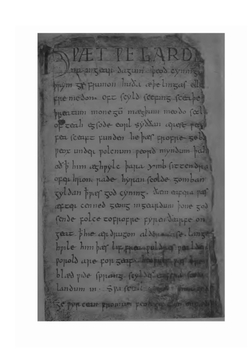 HǷÆT ǷE GARDE
na ingear dagum þeod cyninga
þrym ge frunon huða æþelingas elle
fremedon. oft scyld scefing sceaþe
þreatum monegū mægþum meodo setla
of teah egsode eorl syððan ærest wear
fea sceaft funden he þæs frofre geba
ƿeox under ƿolcnum ƿeorð myndum þah
oð ꝥ him æghƿylc þara ymb sittendra
ofer hron rade hyran scolde gomban
gyldan ꝥ ƿæs god cyning. ðæm eafera ƿæs
æfter cenned geong in geardum þone god
sende folce tofrofre fyren ðearfe on
geat ꝥ hie ær drugon aldor ase. lange
hƿile him þæs lif frea
ƿorold are for geaf.
blæd ƿide sprang scyldes eafera
landum in. Sƿa sceal
ge ƿyrcean fromum